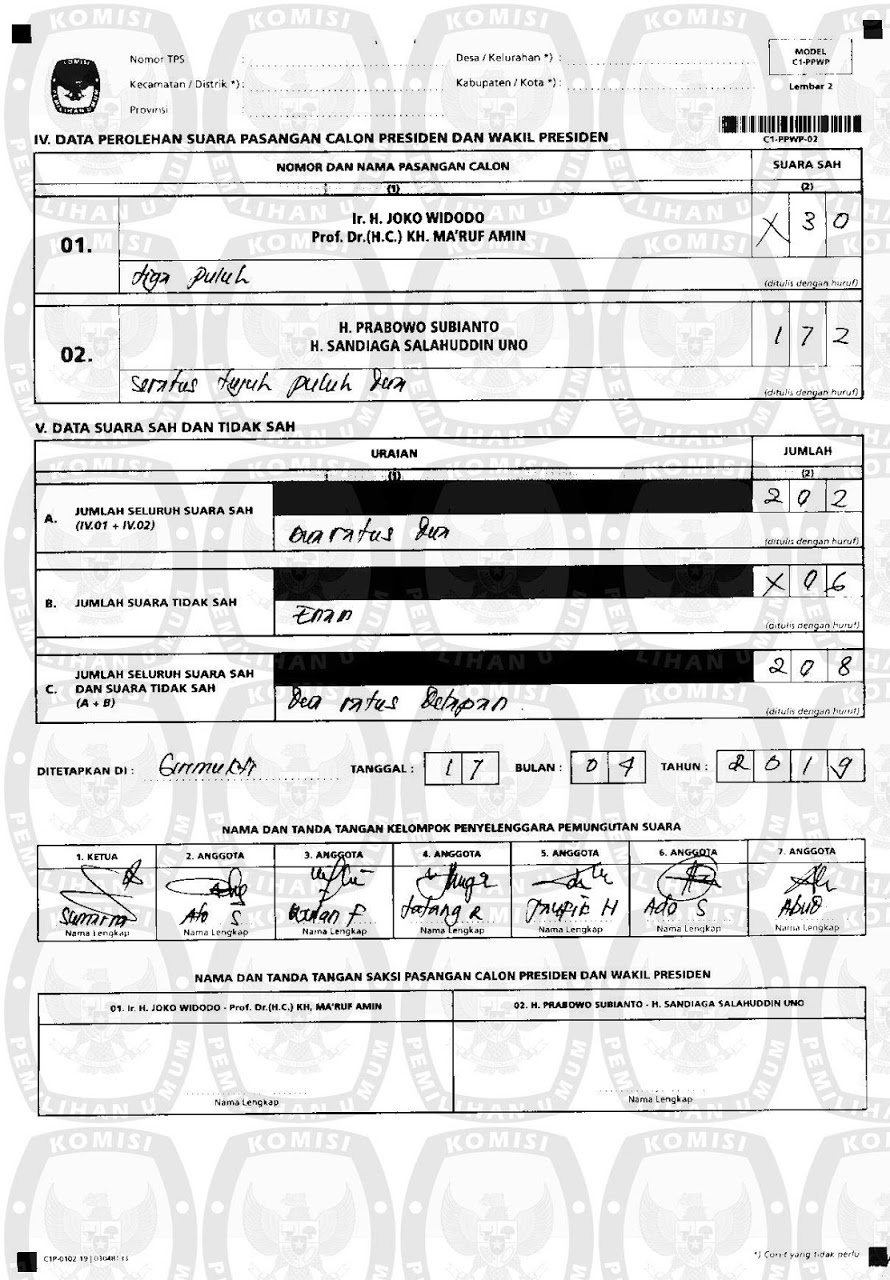 Nomor TPS :
Desa / Kelurahan *) :
MODEL
C1-PPWP
Kecamatan / Distrik *) :
Kabupaten / Kota *) :
Lembar 2
Provinsi :
C1-PPWP-02
IV. DATA PEROLEHAN SUARA PASANGAN CALON PRESIDEN DAN WAKIL PRESIDEN
NOMOR DAN NAMA PASANGAN CALON SUARA SAH
(1) (2)
01. Ir. H. JOKO WIDODO
Prof. Dr.(H.C.) KH. MA'RUF AMIN
X 3 0
tiga puluh
(ditulis dengan huruf)
02. H. PRABOWO SUBIANTO
H. SANDIAGA SALAHUDDIN UNO
1 7 2
seratus tujuh puluh dua
(ditulis dengan huruf)
V. DATA SUARA SAH DAN TIDAK SAH
URAIAN JUMLAH
(1) (2)
A. JUMLAH SELURUH SUARA SAH
(IV.01 + IV.02)
2 0 2
Dua ratus dua
(ditulis dengan huruf)
B. JUMLAH SUARA TIDAK SAH
X 0 6
Enam
(ditulis dengan huruf)
C. JUMLAH SELURUH SUARA SAH
DAN SUARA TIDAK SAH
(A + B)
2 0 8
Dua ratus delapan
(ditulis dengan huruf)
DITETAPKAN DI : Girimukti TANGGAL : 1 7 BULAN : 0 4 TAHUN : 2 0 1 9
NAMA DAN TANDA TANGAN KELOMPOK PENYELENGGARA PEMUNGUTAN SUARA
1. KETUA 2. ANGGOTA 3. ANGGOTA 4. ANGGOTA 5. ANGGOTA 6. ANGGOTA 7. ANGGOTA
Sumarna Ato S F Tatang R Taupik H Ado S Abud
Nama Lengkap Nama Lengkap Nama Lengkap Nama Lengkap Nama Lengkap Nama Lengkap Nama Lengkap
NAMA DAN TANDA TANGAN SAKSI PASANGAN CALON PRESIDEN DAN WAKIL PRESIDEN
01. Ir. H. JOKO WIDODO - Prof. Dr.(H.C.) KH. MA'RUF AMIN 02. H. PRABOWO SUBIANTO - H. SANDIAGA SALAHUDDIN UNO
Nama Lengkap Nama Lengkap
*) Coret yang tidak perlu